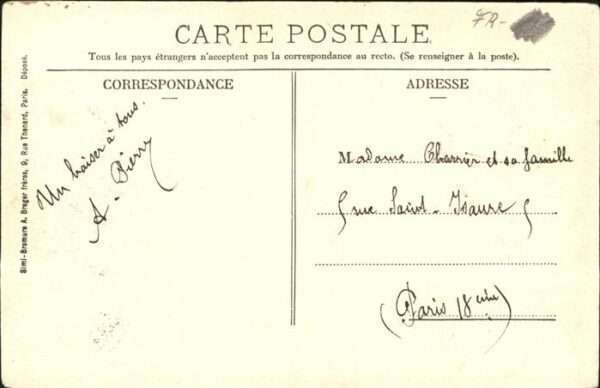 FR-
CARTE POSTALE
Tous les pays étrangers n'acceptent pas la correspondance au recto. (Se renseigner à la poste).
CORRESPONDANCE
ADRESSE
Simi-Bromure A. Breger frères, 9, Rue Thenard, Paris. Déposé.
Un baiser à tous.
A. Pierry
Madame Charrier et sa famille
5 rue Saint-Isaure 5
(Paris 18ème)